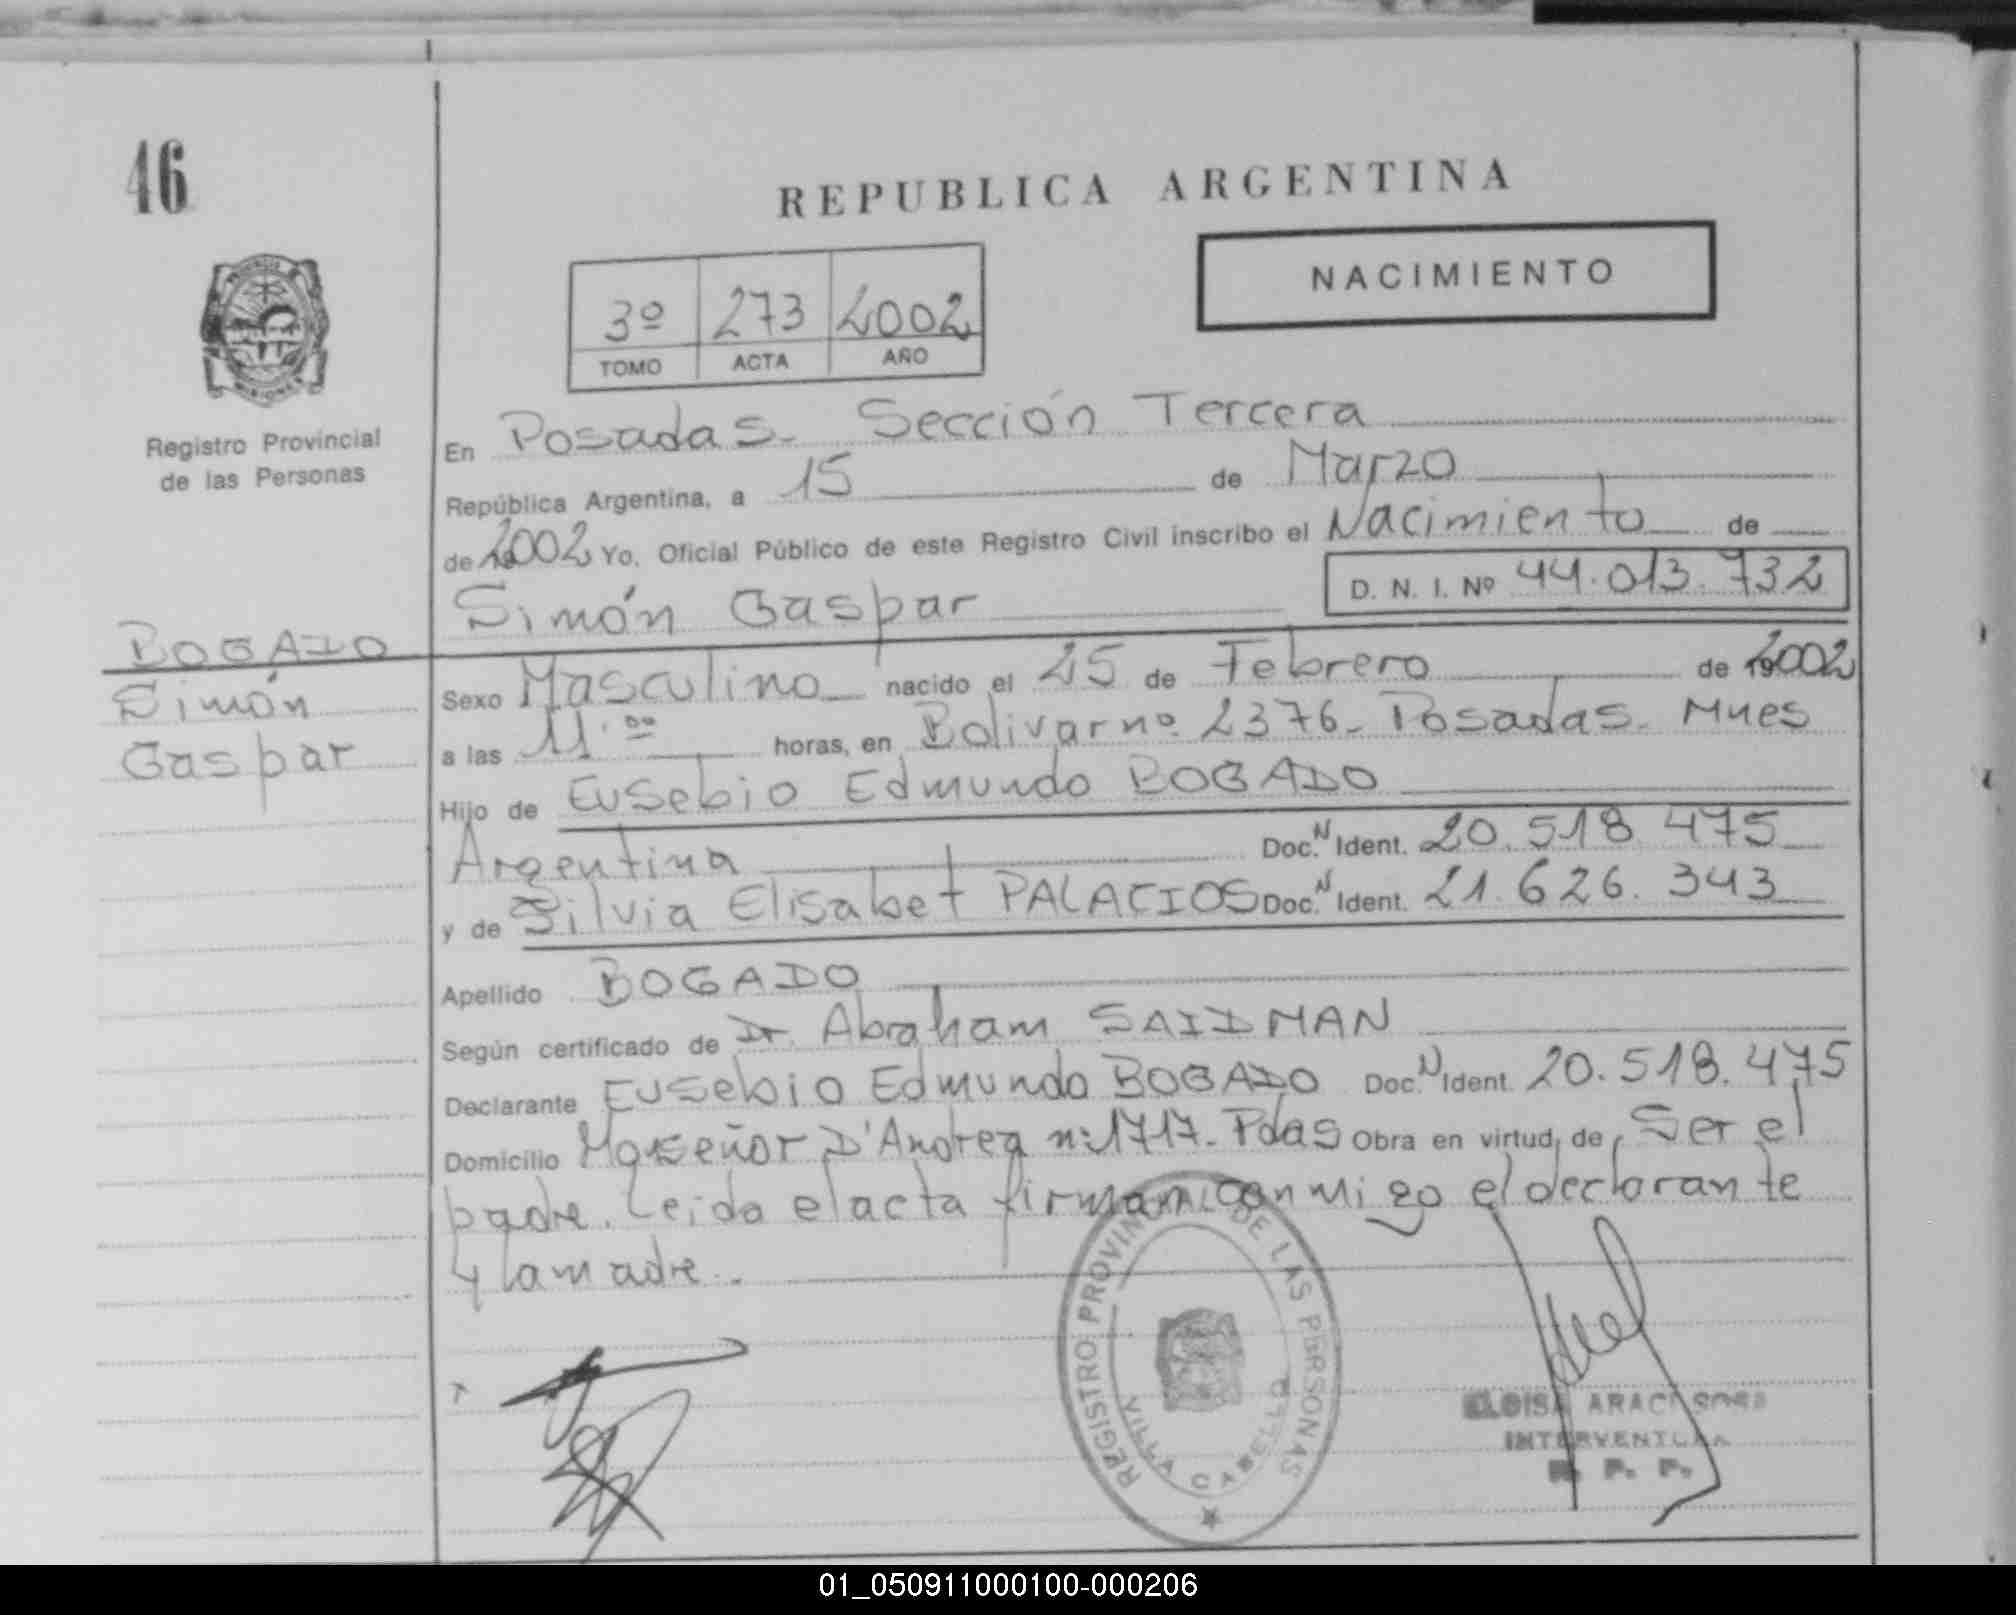 46
REPUBLICA ARGENTINA
NACIMIENTO
3º 273 2002
TOMO ACTA AÑO
Registro Provincial
de las Personas
En Posadas. Sección Tercera
República Argentina, a 15 de Marzo
de 2002 Yo, Oficial Público de este Registro Civil inscribo el Nacimiento de
Simón Gaspar D. N. I. Nº 44.013.732
BOGADO
Simón
Gaspar
Sexo Masculino nacido el 25 de Febrero de 2002
a las 11.00 horas, en Bolivar nº 2376. Posadas. Mnes
Hijo de Eusebio Edmundo BOGADO
Argentina Doc. N Ident. 20.518.475
y de Silvia Elisabet PALACIOS Doc. N Ident. 21.626.343
Apellido BOGADO
Según certificado de Dr. Abraham SAIDMAN
Declarante Eusebio Edmundo BOGADO Doc. N Ident. 20.518.475
Domicilio Monseñor D'Andrea nº 1717. Pdas Obra en virtud, de Ser el
padre. Leida el acta firman conmigo el declarante
y la madre.
REGISTRO PROVINCIAL DE LAS PERSONAS
VILLA CABELLO
ELOISA ARACI SOSA
INTERVENTORA
R. P. P.
01_050911000100-000206